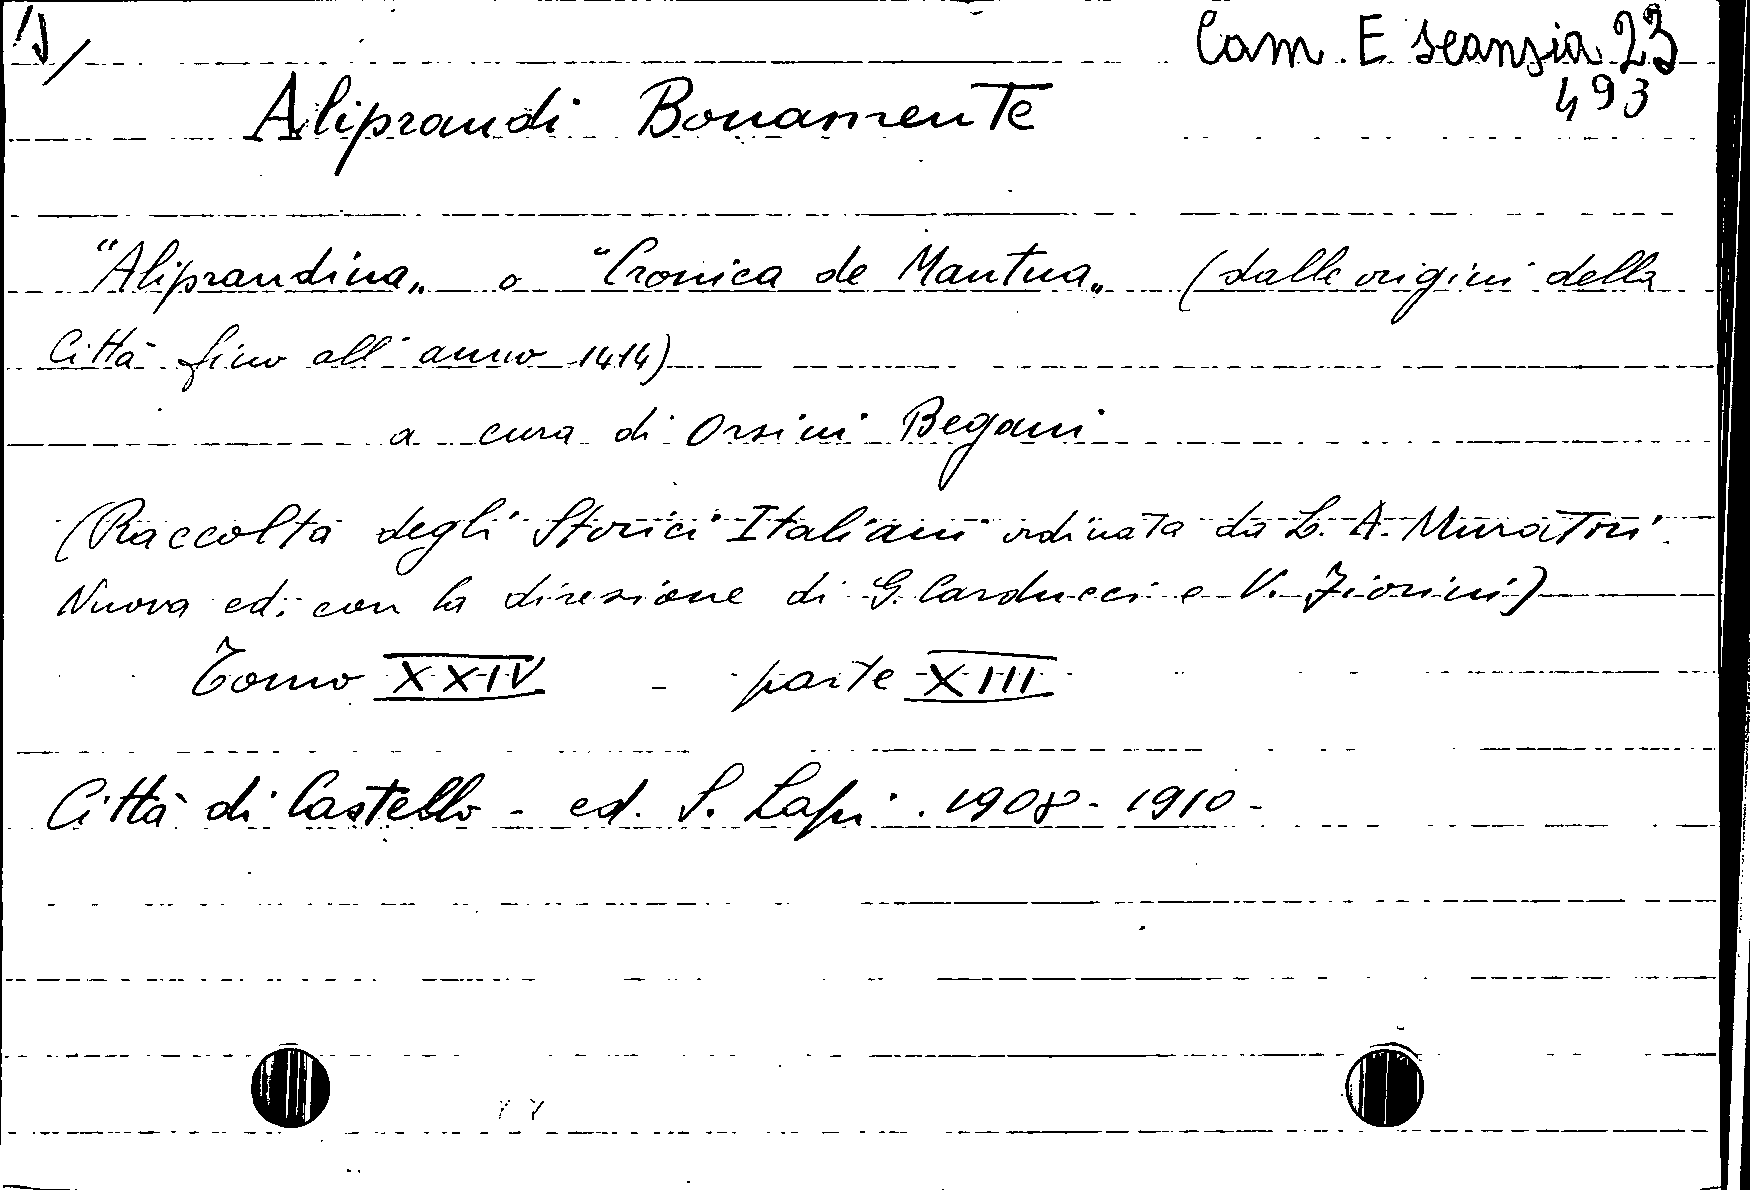 1)/
Cam. E scansia 23
493
Aliprandi Bonamente
"Aliprandina„ o "Cronica de Mantua„ (dalle origini della
Città fino all'anno 1414)
a cura di Orsini Begani
(Raccolta degli Storici Italiani ordinata da L. A. Muratori.
Nuova ed. con la direzione di G. Carducci e V. Fiorini)
Tomo XXIV - parte XIII
Città di Castello - ed. S. Lapi. 1908 - 1910 -